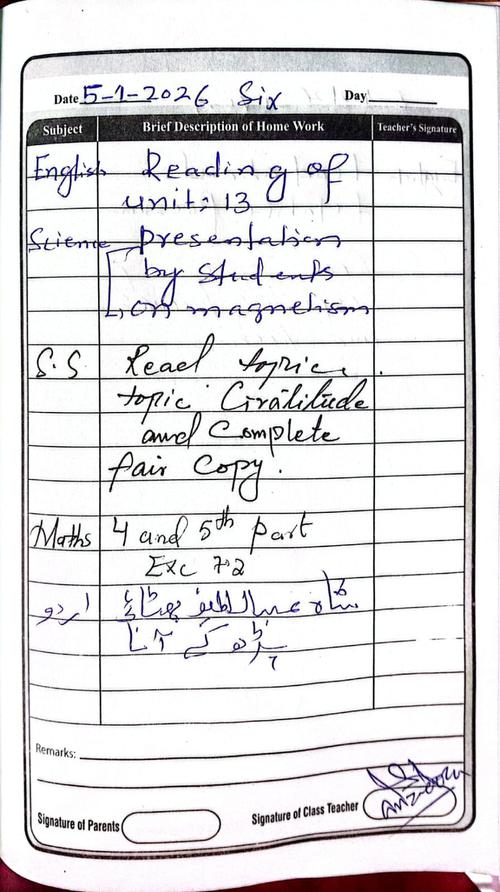 Date 5-1-2026 Six Day
Subject Brief Description of Home Work Teacher's Signature
English Reading of
unit: 13
Science presentation
by students
on magnetism
S.S Read topic
topic Gratitude
and Complete
fair Copy.
Maths 4 and 5th part
Exc 7.2
اردو شاہ عبداللطیف بھٹائی
پڑھ کے آنا
Remarks:
Signature of Parents Signature of Class Teacher